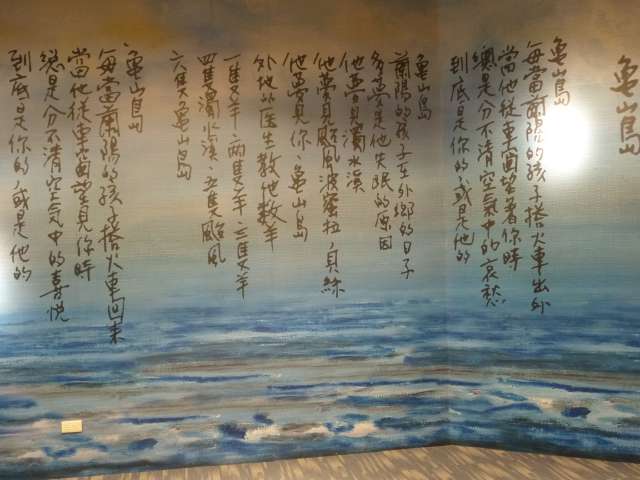 龜山島
龜山島
每當蘭陽的孩子搭火車出外
當他從車窗望著你時
總是分不清空氣中的哀愁
到底是你的、或是他的
龜山島
蘭陽的孩子在外鄉的日子
多夢是他失眠的原因
他夢見濁水溪
他夢見颱風波蜜拉、貝絲
他夢見你、龜山島
外地的醫生教他數羊
一隻羊、兩隻羊、三隻羊
四隻濁水溪、五隻颱風
六隻龜山島
龜山島
每當蘭陽的孩子搭火車回來
當他從車窗望見你時
總是分不清空氣中的喜悅
到底是你的、或是他的